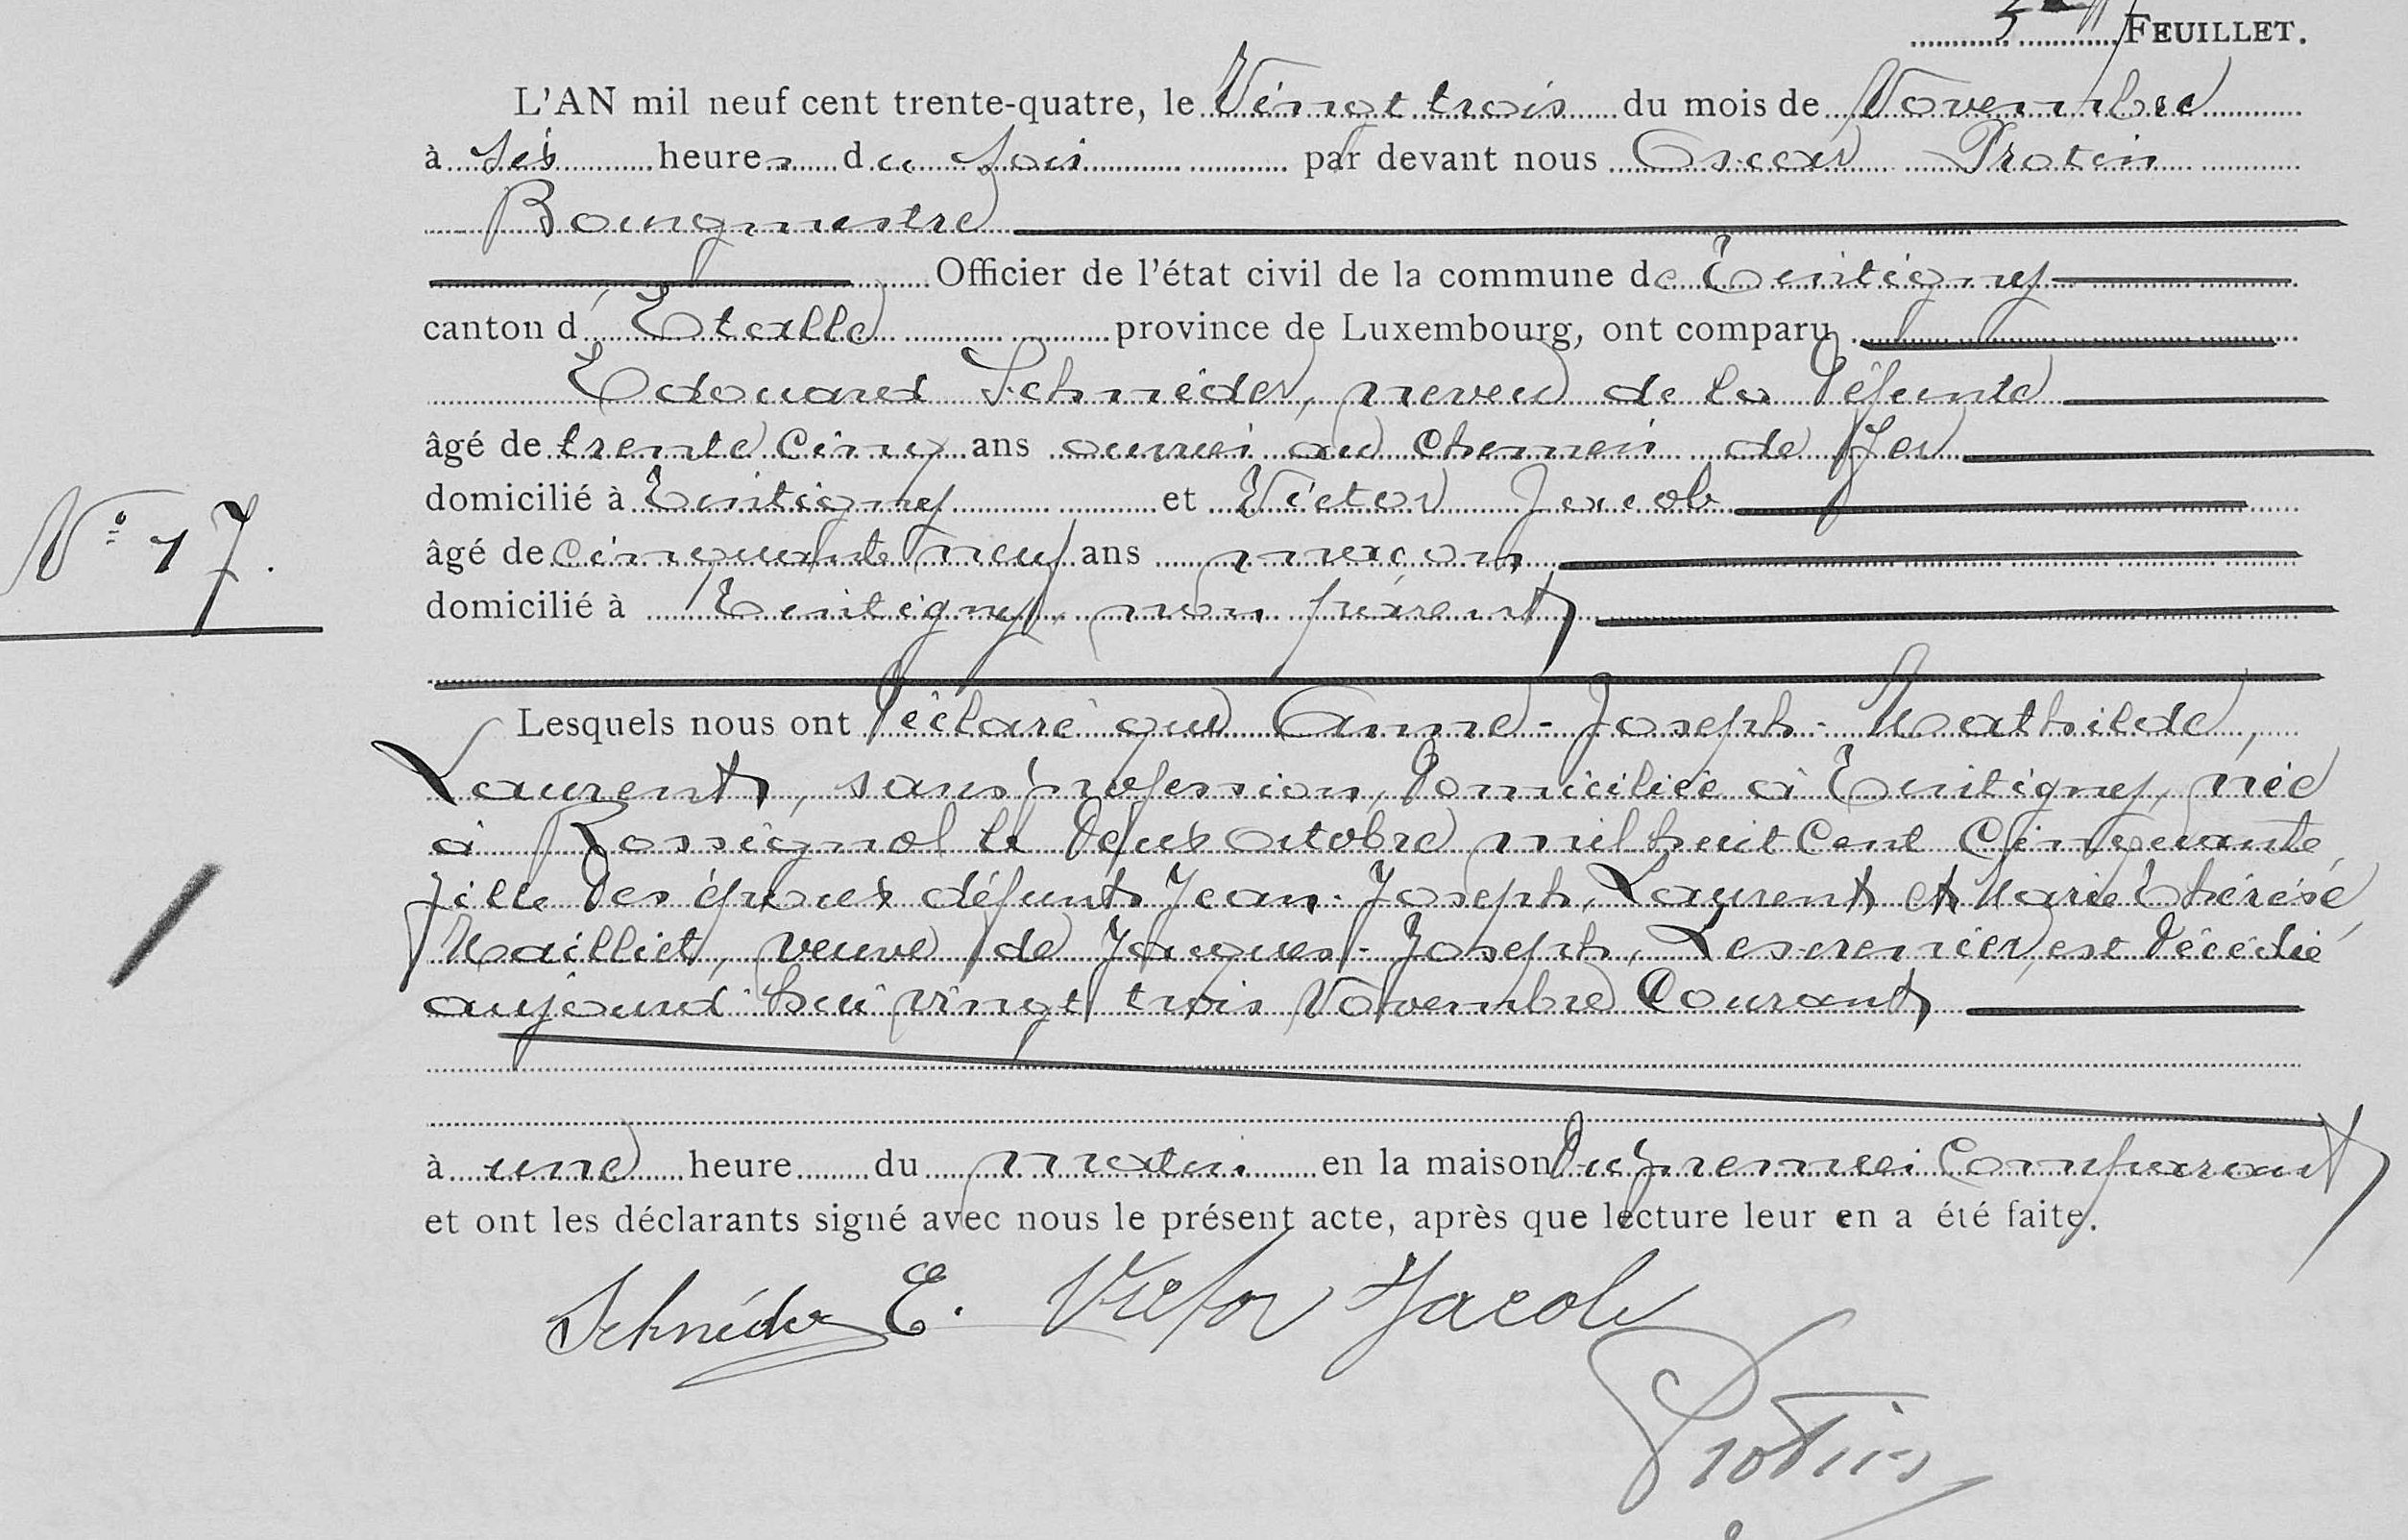 5me FEUILLET.
L'AN mil neuf cent trente-quatre, le Vingt trois du mois de Novembre
à six heures du soir par devant nous Oscar Protin
Bourgmestre
Officier de l'état civil de la commune de Tintigny
canton d'Etalle province de Luxembourg, ont comparu
Edouard Schnéder, neveu de la défunte
âgé de trente cinq ans ouvrier au chemin de fer
domicilié à Tintigny et Victor Jacob
N° 17.
âgé de cinquante neuf ans maçon
domicilié à Tintigny, non parent
Lesquels nous ont déclaré que Anne-Joseph-Mathilde,
Laurent, sans profession, domiciliée à Tintigny, née
à Rossignol le deux octobre mil huit cent cinquante
fille des époux défunts Jean-Joseph, Laurent et Marie Thérèse
Mailliet, veuve de Jacques-Joseph, est décédée
aujourd'hui vingt trois Novembre Courant
à une heure du matin en la maison du premier Comparant
et ont les déclarants signé avec nous le présent acte, après que lecture leur en a été faite.
Schnéder E. Victor Jacob
Protin